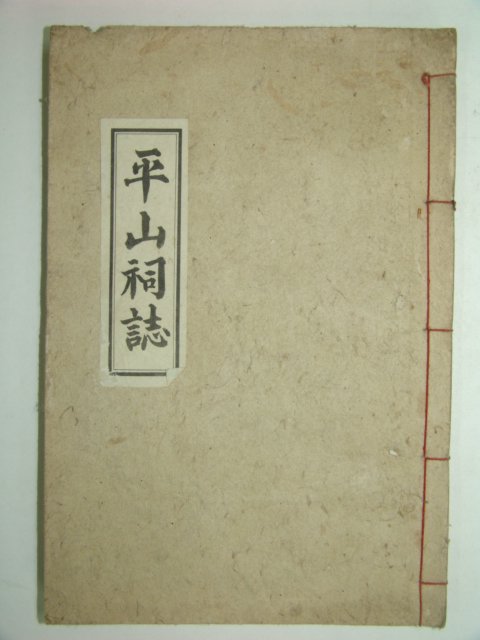 平山祠誌